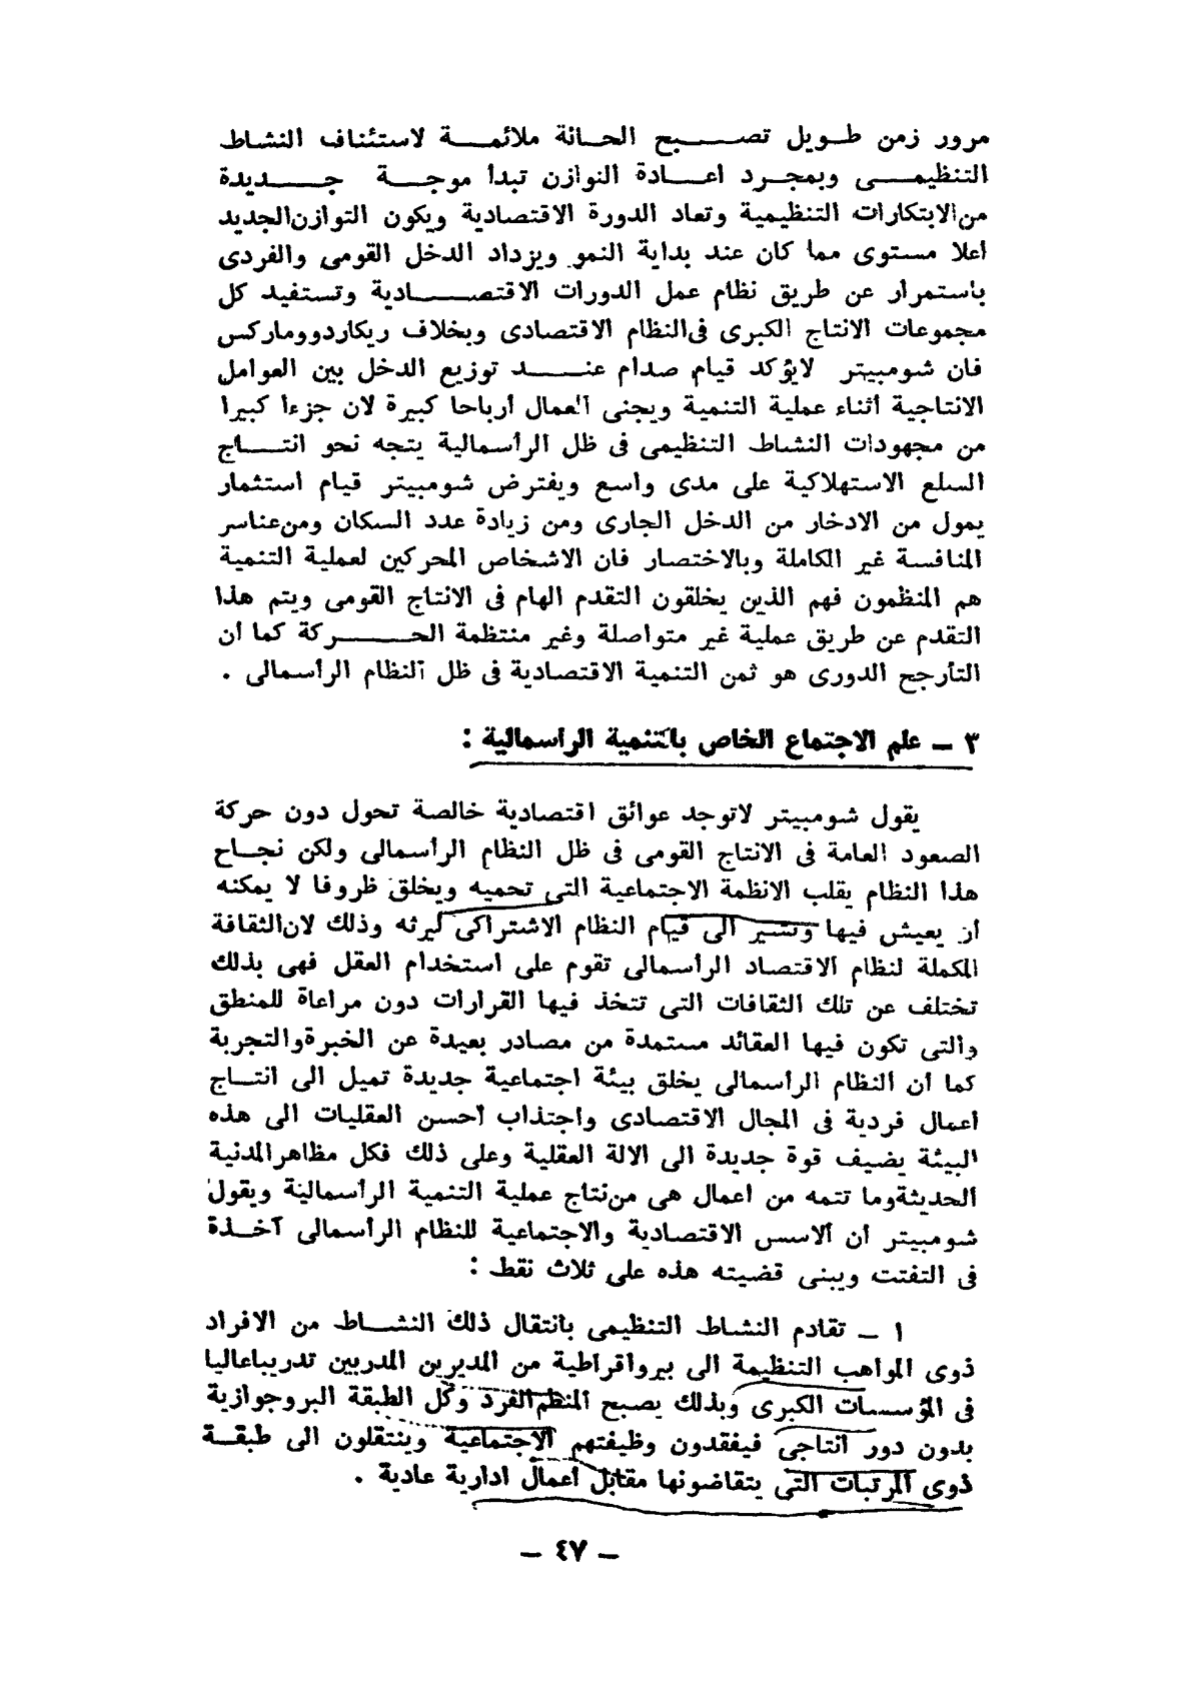 مرور زمن طويل تصبح الحالة ملائمة لاستئناف النشاط
التنظيمى وبمجرد اعادة التوازن تبدأ موجة جديدة
من الابتكارات التنظيمية وتعاد الدورة الاقتصادية ويكون التوازن الجديد
اعلا مستوى مما كان عند بداية النمو ويزداد الدخل القومى والفردى
باستمرار عن طريق نظام عمل الدورات الاقتصادية وتستفيد كل
مجموعات الانتاج الكبرى فى النظام الاقتصادى وبخلاف ريكاردو وماركس
فان شومبيتر لايؤكد قيام صدام عند توزيع الدخل بين العوامل
الانتاجية أثناء عملية التنمية ويجنى العمال أرباحا كبيرة لان جزءا كبيرا
من مجهودات النشاط التنظيمى فى ظل الرأسمالية يتجه نحو انتاج
السلع الاستهلاكية على مدى واسع ويفترض شومبيتر قيام استثمار
يمول من الادخار من الدخل الجارى ومن زيادة عدد السكان ومن عناسر
المنافسة غير الكاملة وبالاختصار فان الاشخاص المحركين لعملية التنمية
هم المنظمون فهم الذين يخلقون التقدم الهام فى الانتاج القومى ويتم هذا
التقدم عن طريق عملية غير متواصلة وغير منتظمة الحركة كما أن
التأرجح الدورى هو ثمن التنمية الاقتصادية فى ظل النظام الرأسمالى .
٣ ـ علم الاجتماع الخاص بالتنمية الراسمالية :
يقول شومبيتر لاتوجد عوائق اقتصادية خالصة تحول دون حركة
الصعود العامة فى الانتاج القومى فى ظل النظام الرأسمالى ولكن نجاح
هذا النظام يقلب الانظمة الاجتماعية التى تحميه ويخلق ظروفا لا يمكنه
أن يعيش فيها وتشير الى قيام النظام الاشتراكى ليرثه وذلك لان الثقافة
المكملة لنظام الاقتصاد الرأسمالى تقوم على استخدام العقل فهى بذلك
تختلف عن تلك الثقافات التى تتخذ فيها القرارات دون مراعاة للمنطق
والتى تكون فيها العقائد مستمدة من مصادر بعيدة عن الخبرة والتجربة
كما أن النظام الرأسمالى يخلق بيئة اجتماعية جديدة تميل الى انتاج
اعمال فردية فى المجال الاقتصادى واجتذاب أحسن العقليات الى هذه
البيئة يضيف قوة جديدة الى الالة العقلية وعلى ذلك فكل مظاهر المدنية
الحديثة وما تتمه من اعمال هى من نتاج عملية التنمية الرأسمالية ويقول
شومبيتر أن الاسس الاقتصادية والاجتماعية للنظام الرأسمالى آخذة
فى التفتت ويبنى قضيته هذه على ثلاث نقط :
١ ـ تقادم النشاط التنظيمى بانتقال ذلك النشاط من الافراد
ذوى المواهب التنظيمة الى بيروقراطية من المديرين المدربين تدريبا عاليا
فى المؤسسات الكبرى وبذلك يصبح المنظم الفرد وكل الطبقة البروجوازية
بدون دور انتاجى فيفقدون وظيفتهم الاجتماعية وينتقلون الى طبقة
ذوى المرتبات التى يتقاضونها مقابل أعمال ادارية عادية .
ـ ٤٧ ـ